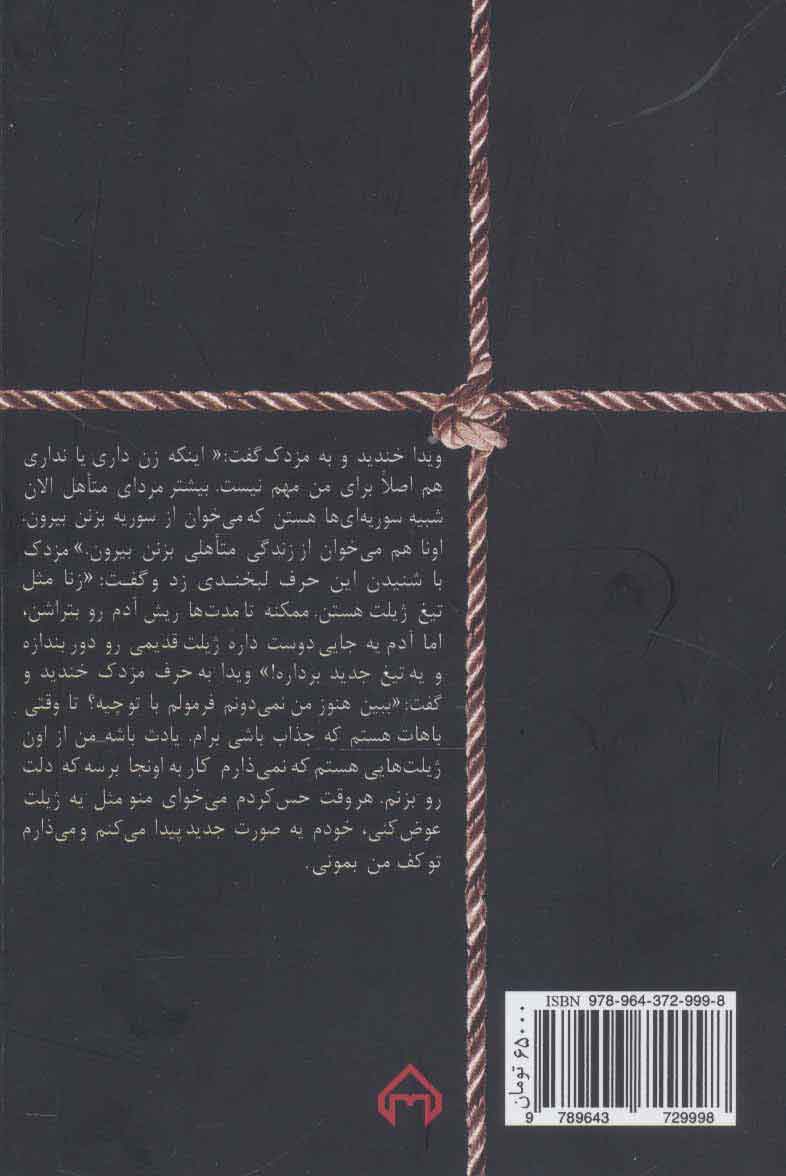 ویدا خندید و به مزدک گفت:« اینکه زن داری یا نداری
هم اصلاً برای من مهم نیست. بیشتر مردای متأهل الان
شبیه سوریه‌ای‌ها هستن که می‌خوان از سوریه بزنن بیرون.
اونا هم می‌خوان از زندگی متأهلی بزنن بیرون.» مزدک
با شنیدن این حرف لبخندی زد و گفت: «زنا مثل
تیغ ژیلت هستن. ممکنه تا مدت‌ها ریش آدم رو بتراشن،
اما آدم یه جایی دوست داره ژیلت قدیمی رو دور بندازه
و یه تیغ جدید برداره!» ویدا به حرف مزدک خندید و
گفت: «ببین هنوز من نمی‌دونم فرمولم با تو چیه؟ تا وقتی
باهات هستم که جذاب باشی برام. یادت باشه من از اون
ژیلت‌هایی هستم که نمی‌ذارم کار به اونجا برسه که دلت
رو بزنم. هر وقت حس کردم می‌خوای منو مثل یه ژیلت
عوض کنی، خودم یه صورت جدید پیدا می‌کنم و می‌ذارم
تو کف من بمونی.
ISBN 978-964-372-999-8
۶۵۰۰۰ تومان
9 789643 729998